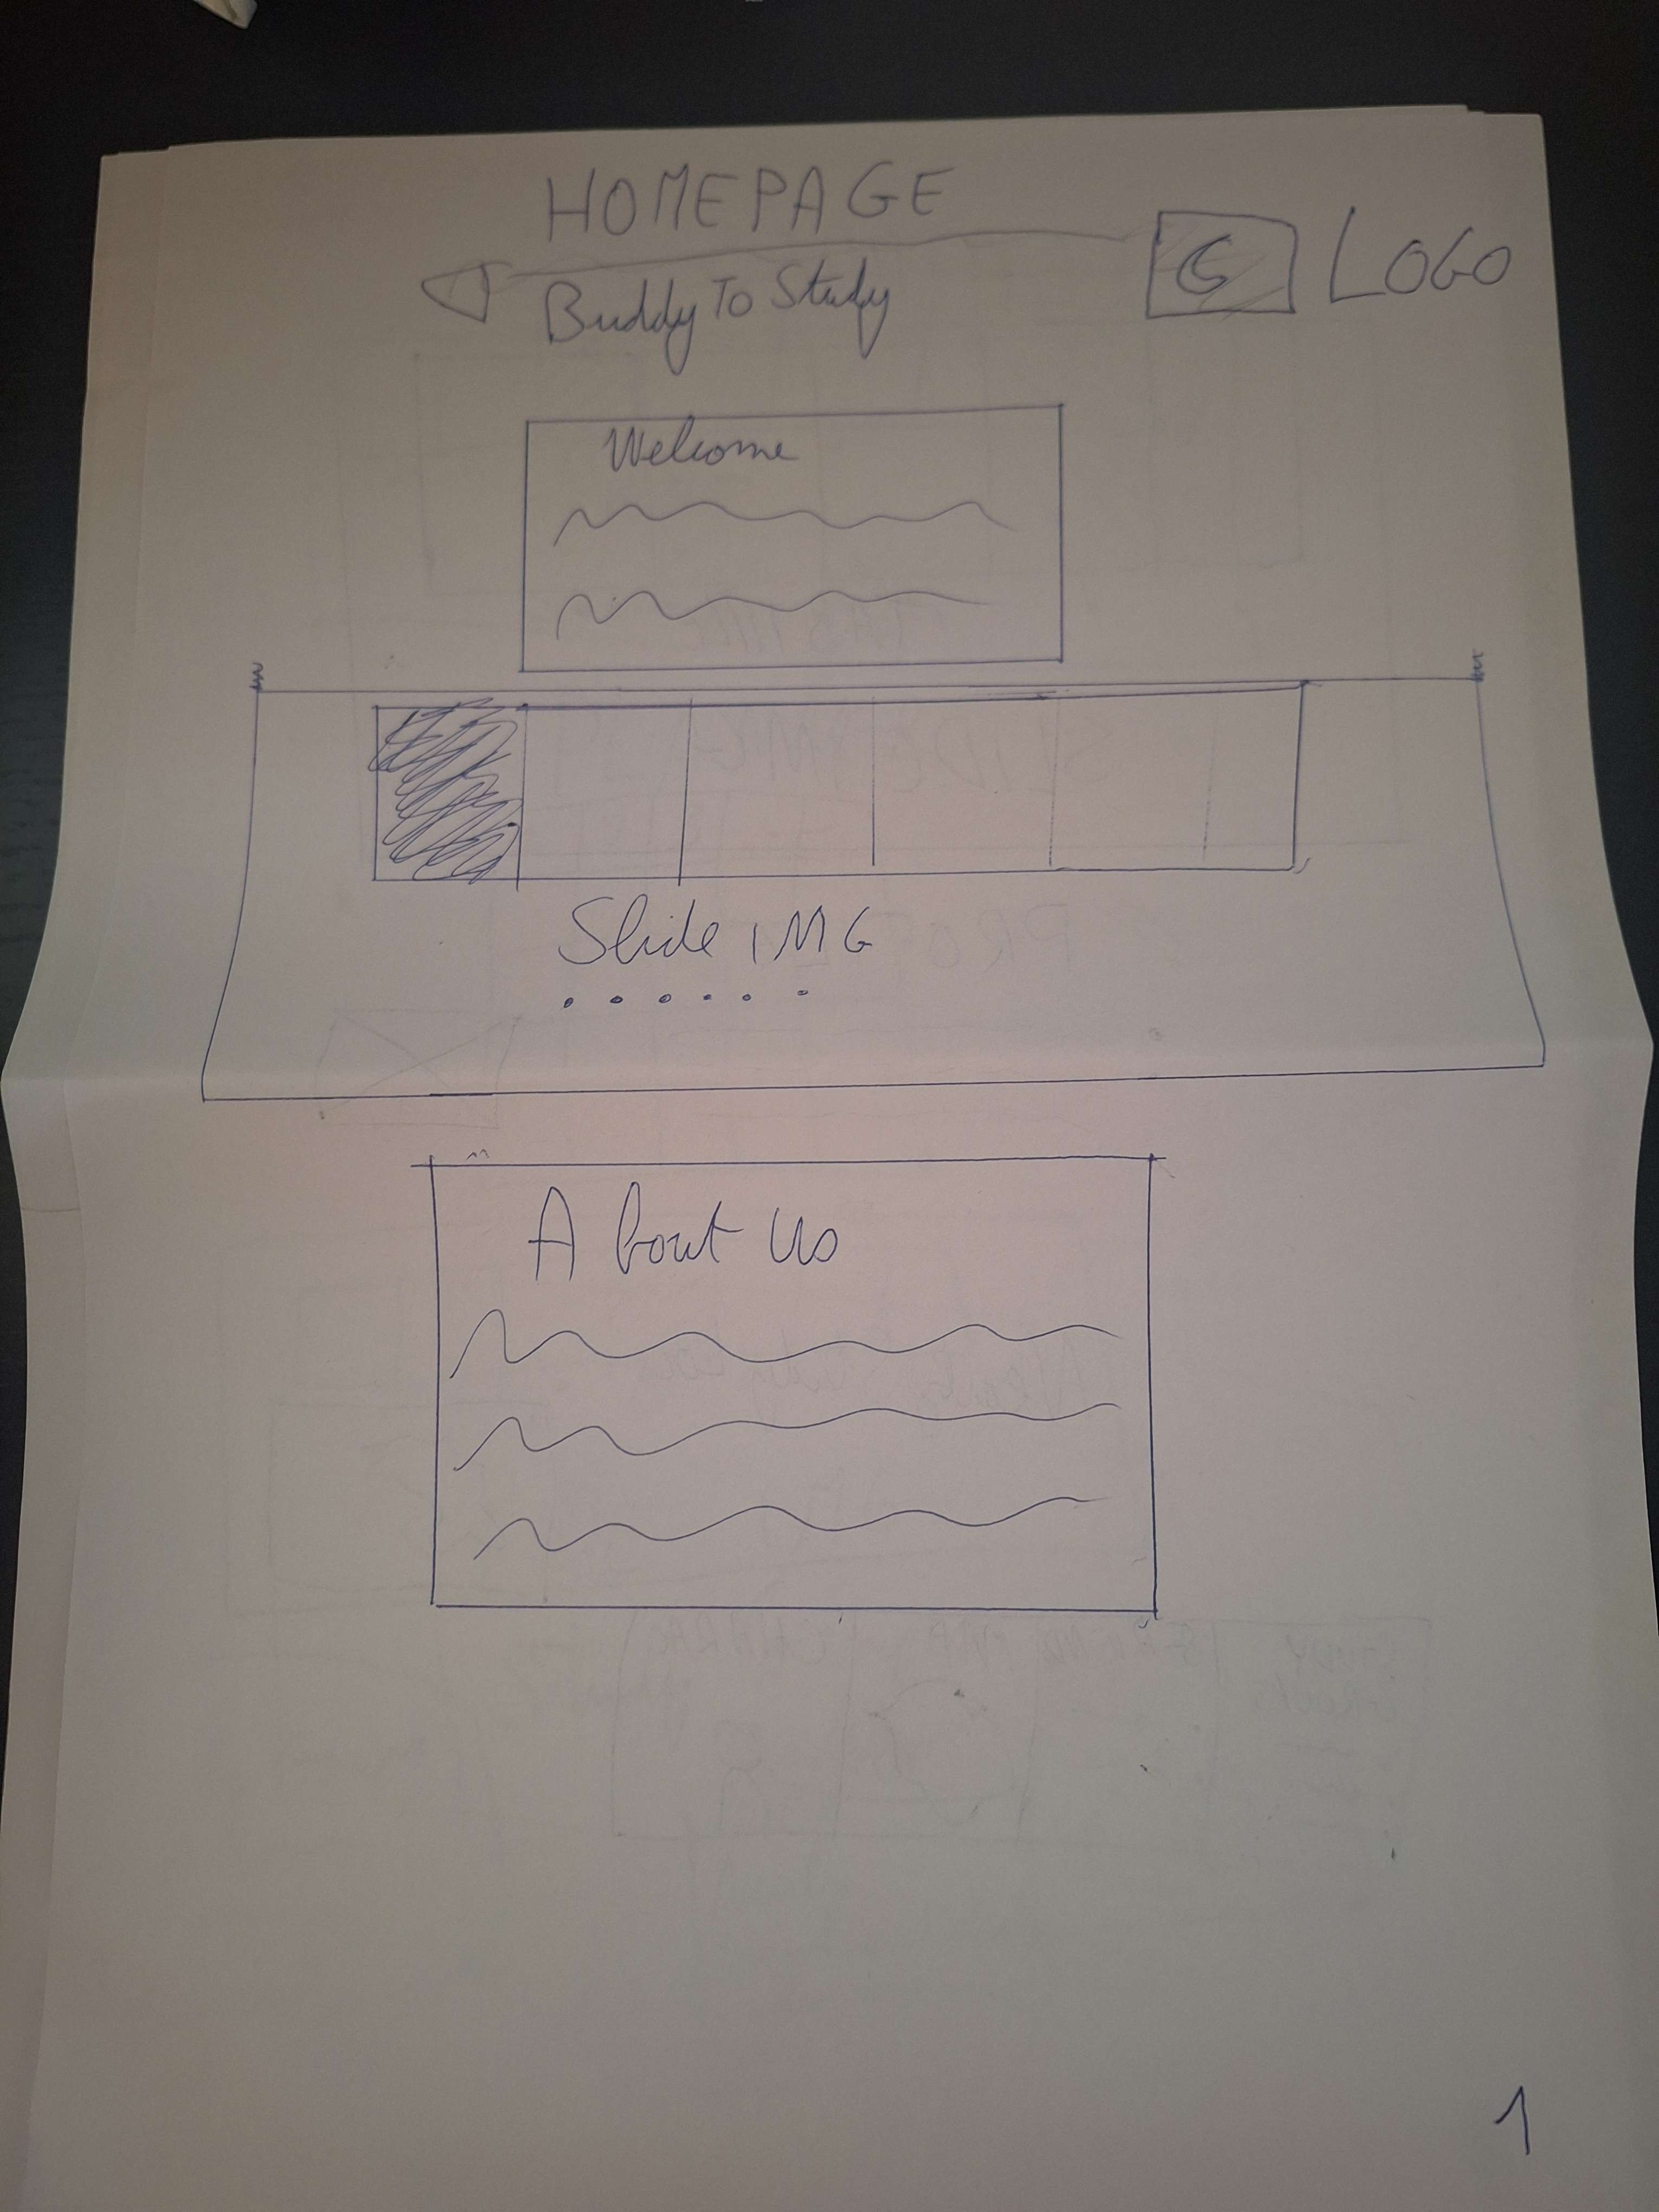 HOMEPAGE
LOGO
Buddy To Study
Welcome
Slide IMG
About Us
1